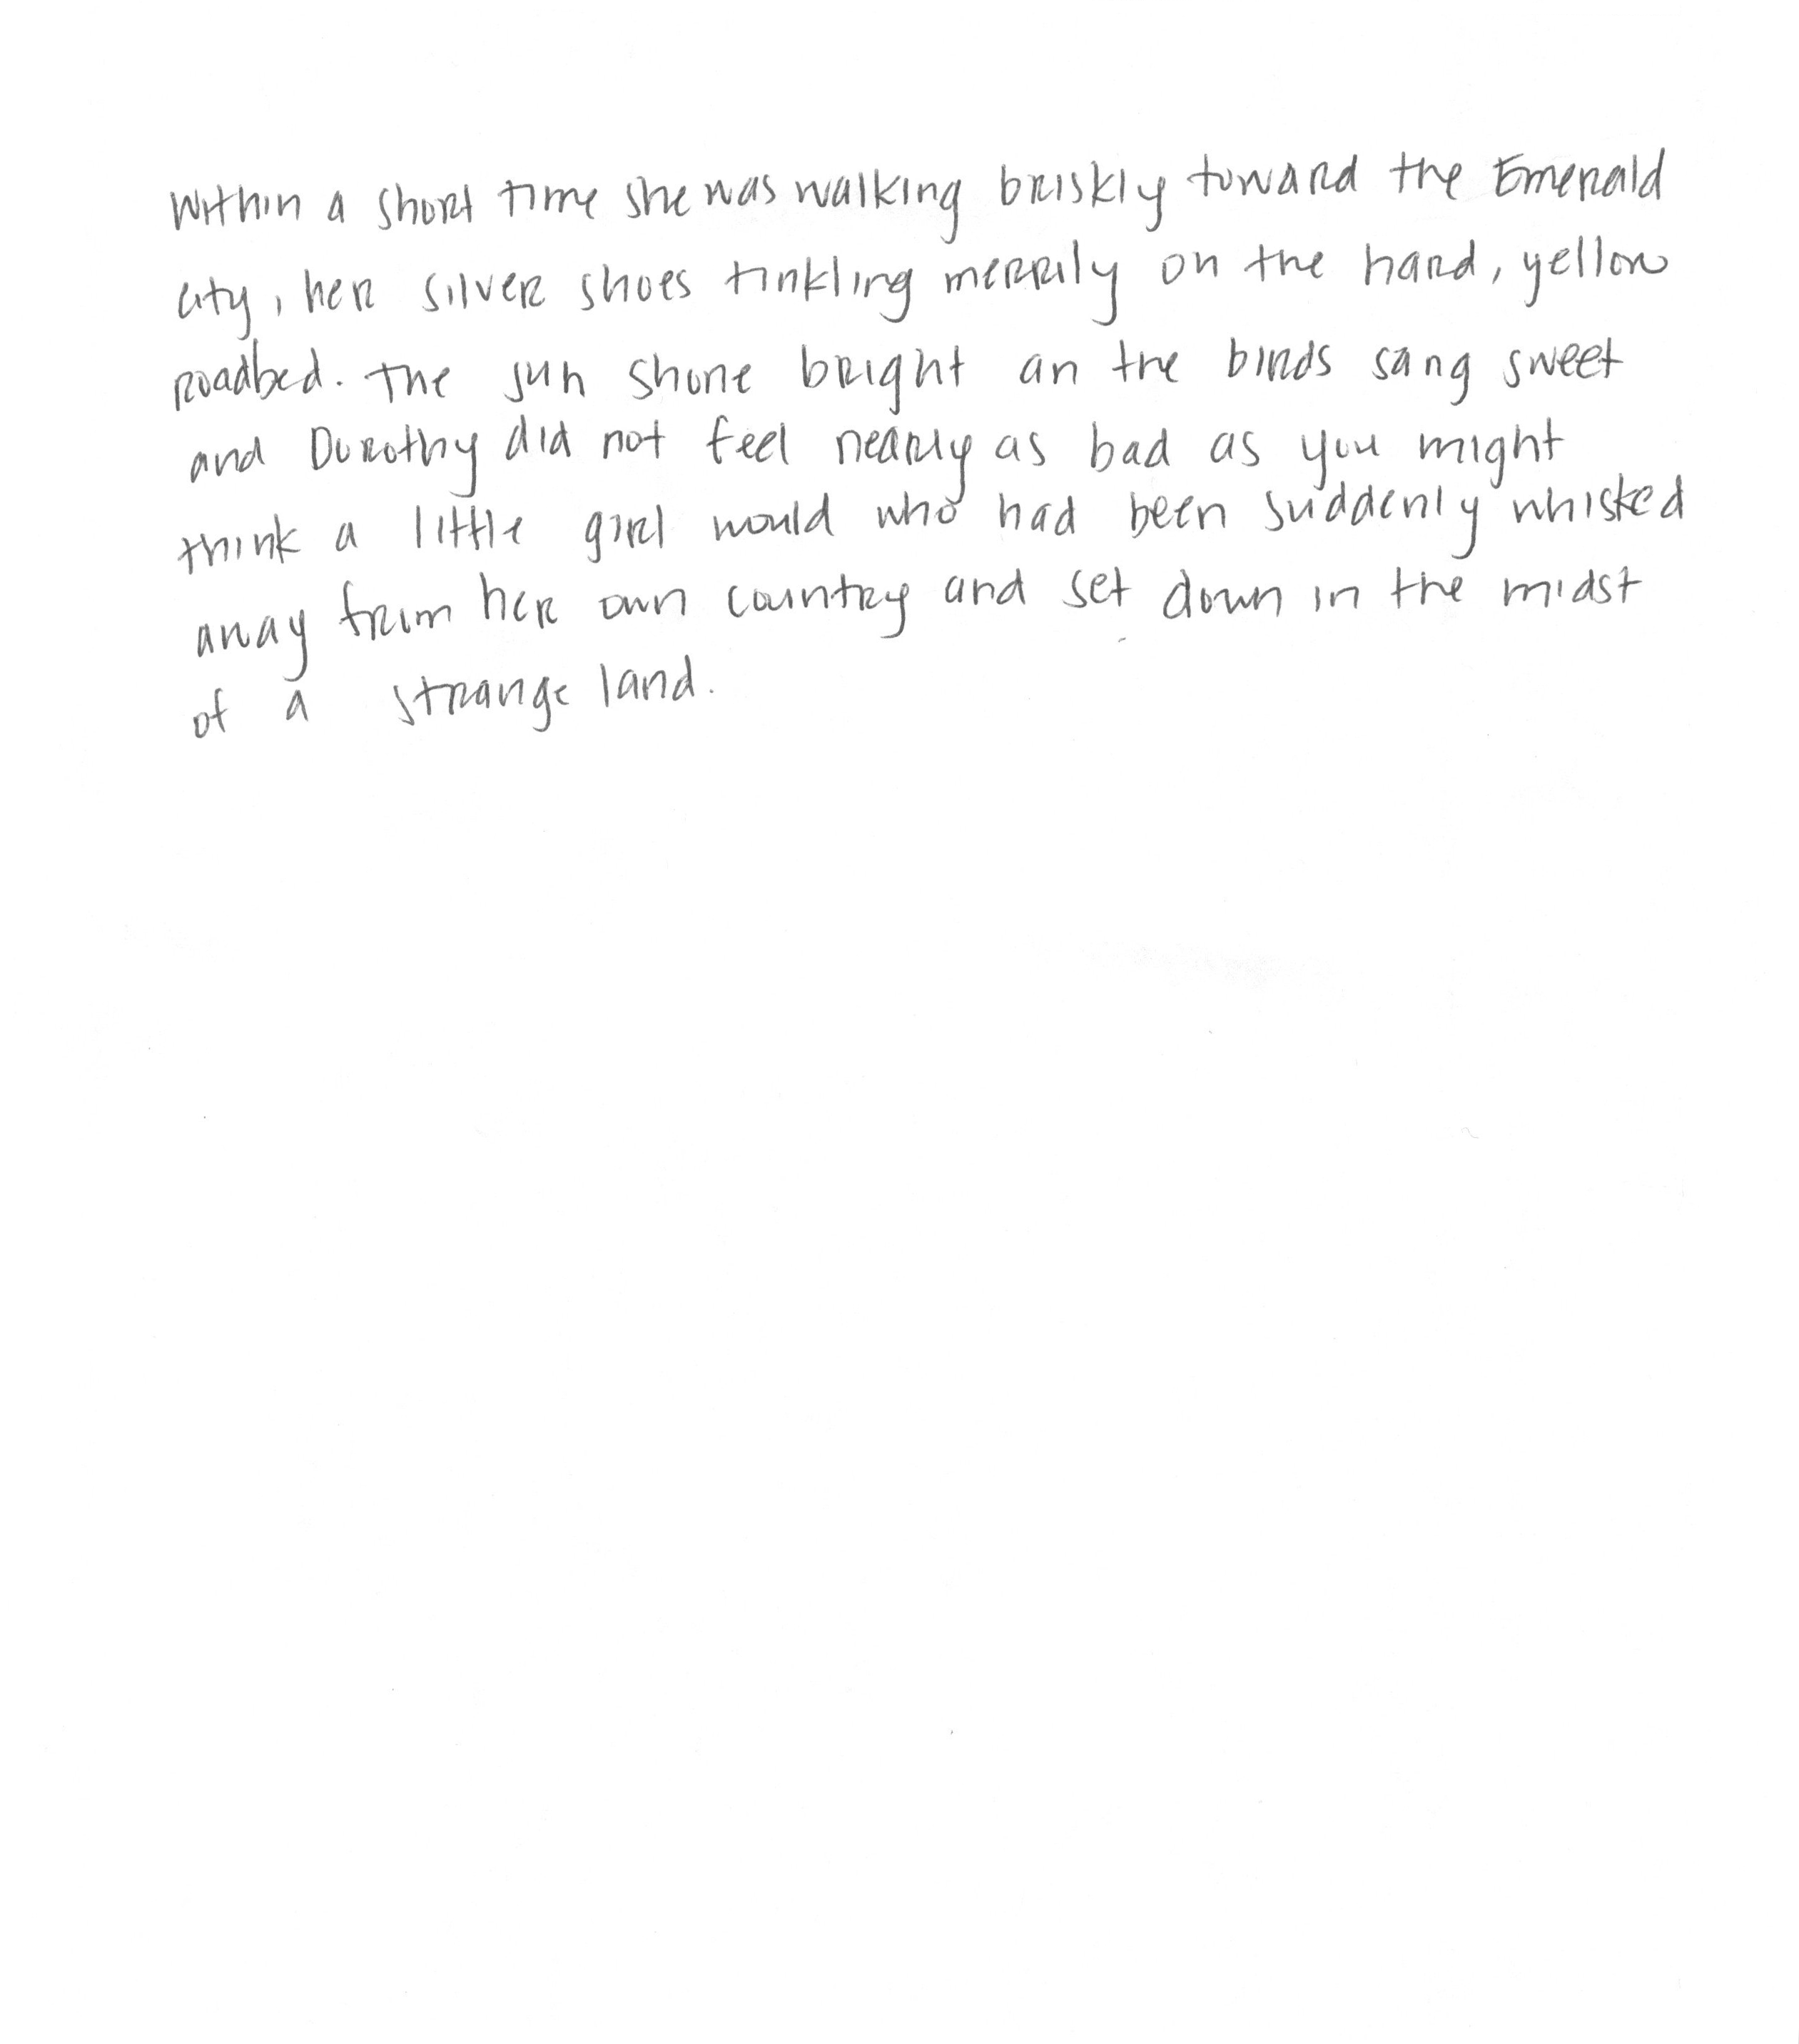 Within a short time she was walking briskly toward the Emerald
city, her silver shoes tinkling merrily on the hard, yellow
roadbed. The sun shone bright an the birds sang sweet
and Dorothy did not feel nearly as bad as you might
think a little girl would who had been suddenly whisked
away from her own country and set down in the midst
of a strange land.